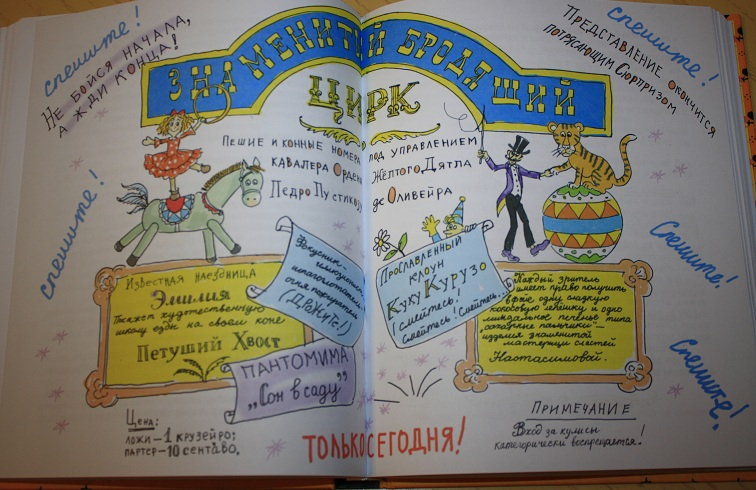 спешите!
Не бойся начала,
а жди конца!
Знаменитый бродящий
цирк
спешите!
Представление окончится
потрясающим Сюрпризом
Пешие и конные номера
под управлением
кавалера Ордена
Жёлтого Дятла
Педро Пустикозу
де Оливейра
спешите!
Известная наездница
Эмилия
Покажет художественную
школу езды на своем коне
Петуший Хвост
Фокусник-
шпагоглотатель
огня пожиратель
(Дрожите!)
Прославленный
клоун
Куку Курузо
(смейтесь!
смейтесь! Смейтесь...)
Каждый зритель
имеет право получить
одну сладкую
кокосовую лепёшку и одно
миндальное печенье типа
изделия знаменитой
мастерицы сластей
Настасимовой.
Спешите!
Пантомима
„Сон в саду"
спешите!
Цена:
ложи-1 крузейро;
партер-10 сентаво.
Только сегодня!
Примечание
Вход за кулисы
категорически воспрещается!